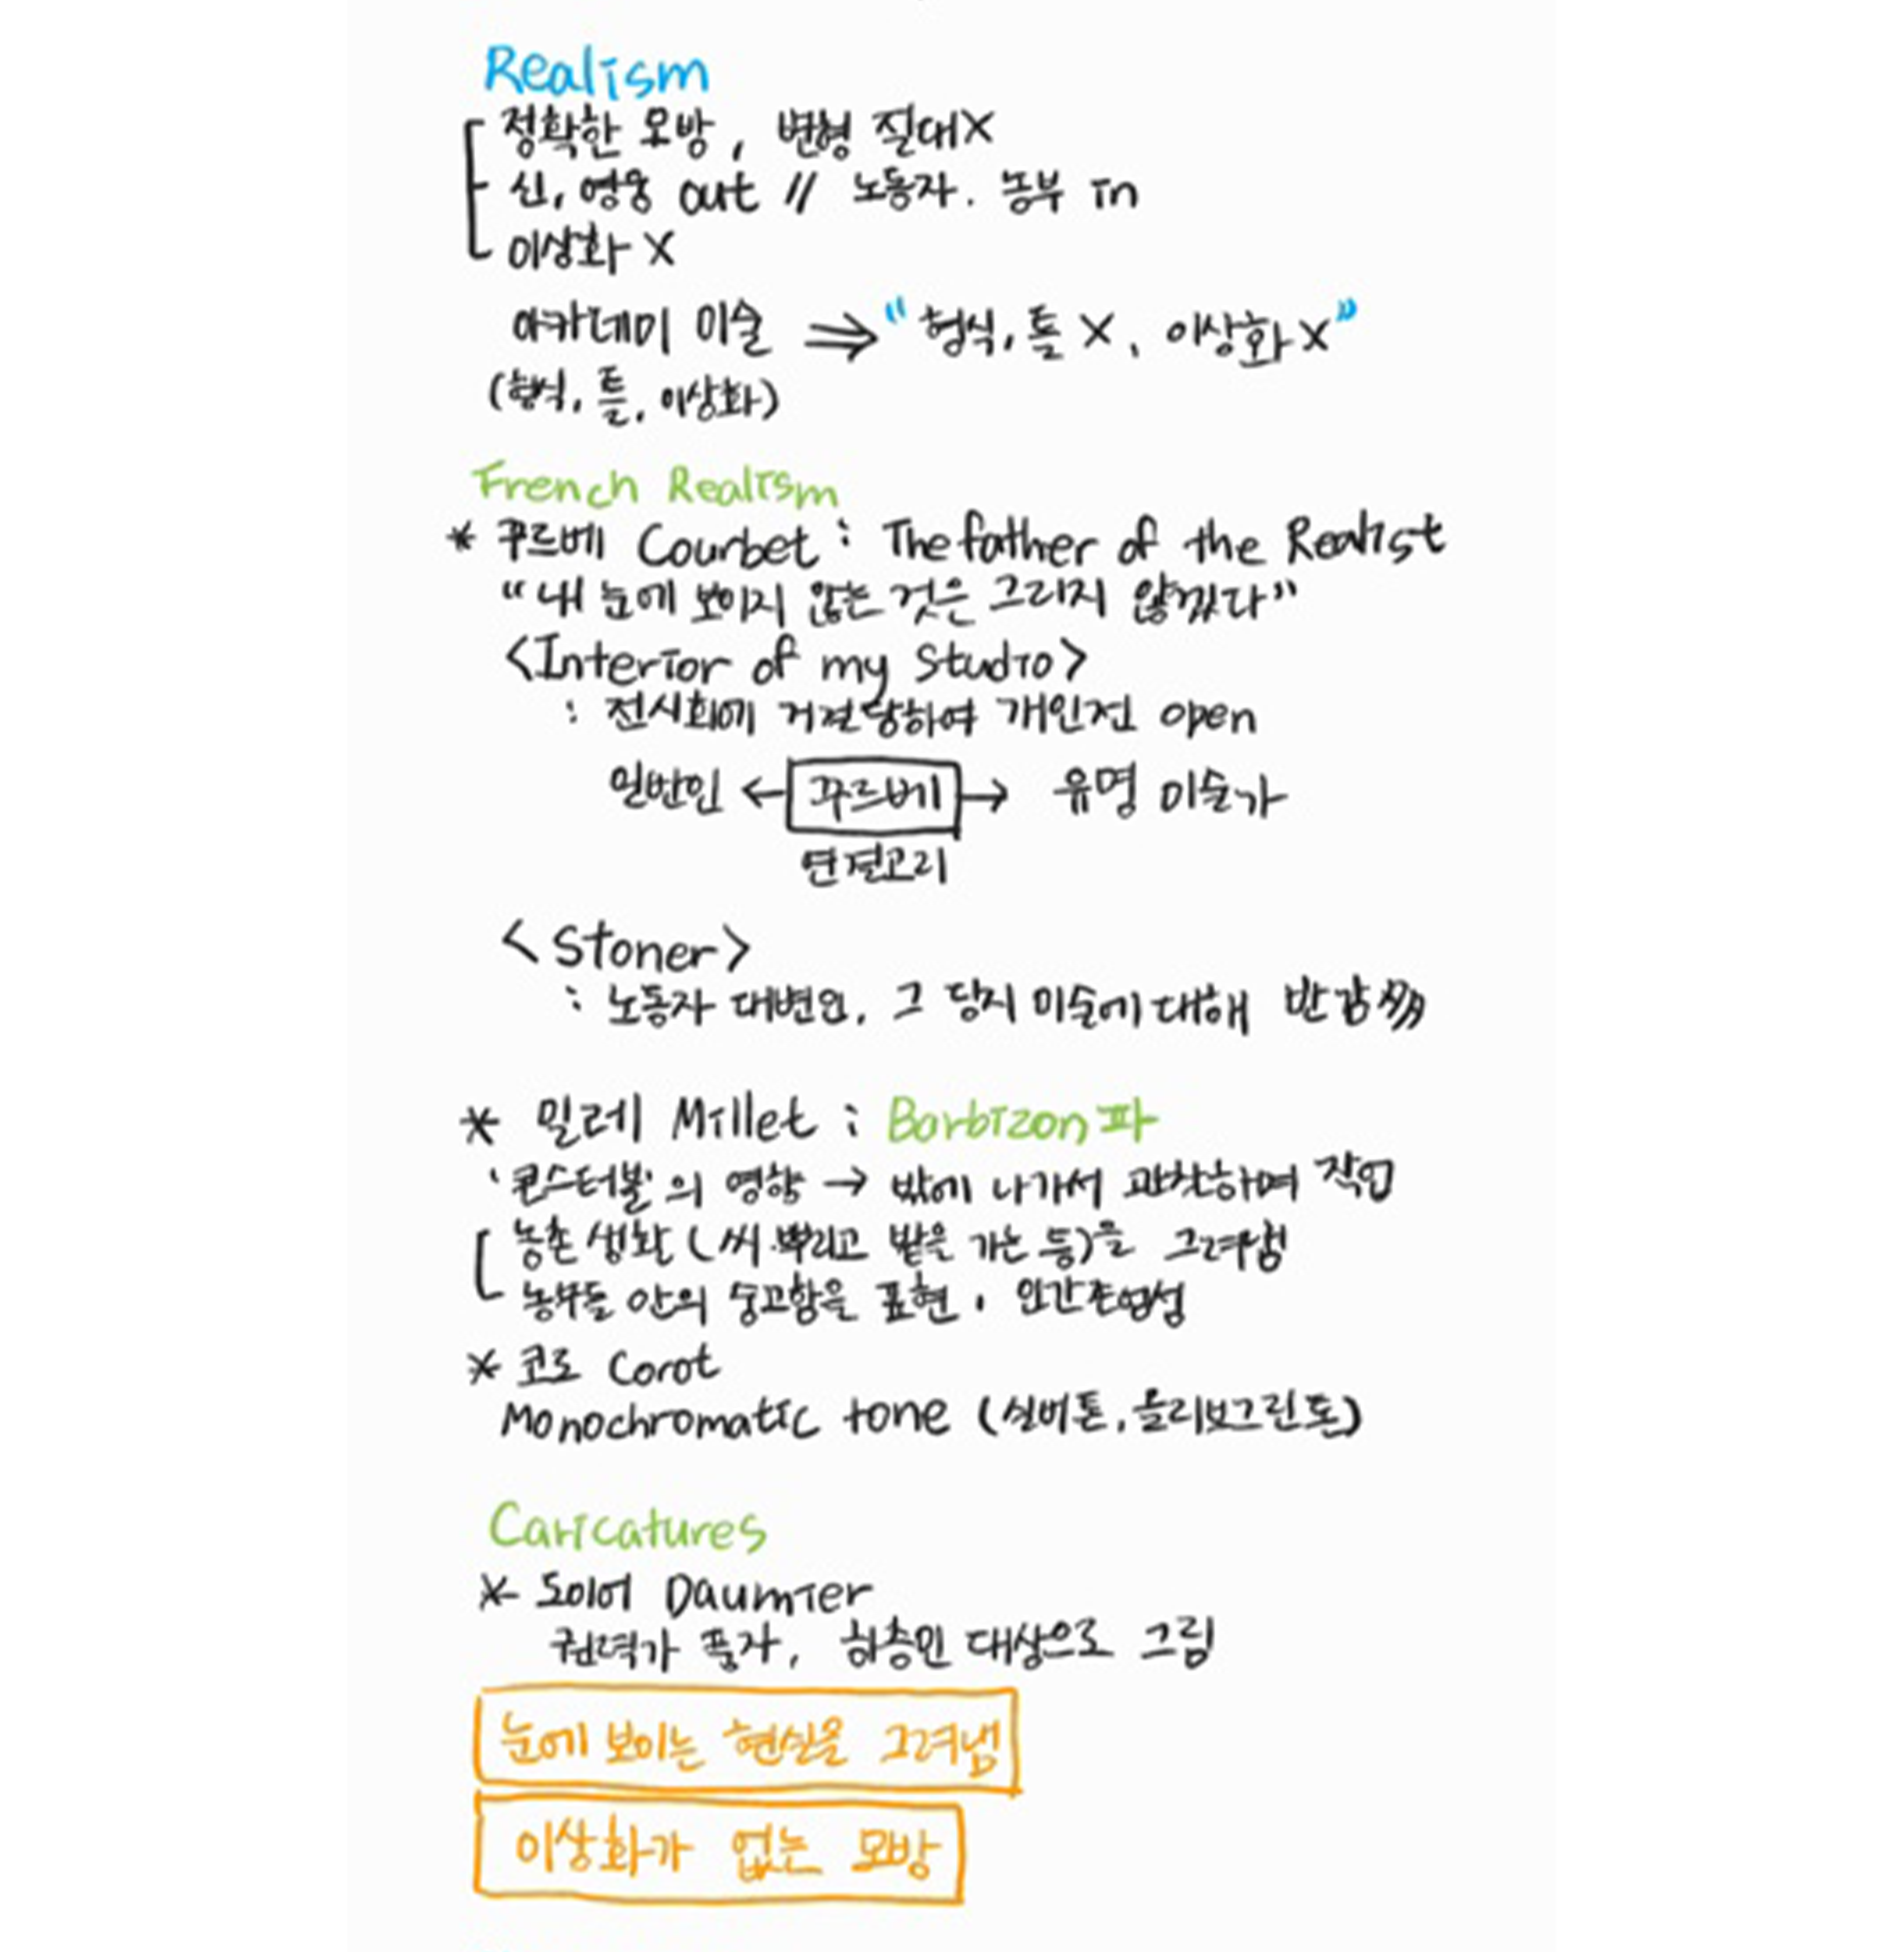 Realism
정확한 모방, 변형 절대X
신, 영웅 out // 노동자. 농부 in
이상화 X
아카데미 미술 ⇒ "형식, 틀 X, 이상화X"
(형식, 틀, 이상화)
French Realism
* 꾸르베 Courbet : The father of the Realist
"내 눈에 보이지 않는 것은 그리지 않겠다"
<Interior of my Studio>
: 전시회에 거절당하여 개인전 open
일반인 ← 꾸르베 → 유명 미술가
연결고리
<Stoner>
: 노동자 대변인, 그 당시 미술에 대해 반감多
* 밀레 Millet : Barbizon파
'콘스터블'의 영향 → 밖에 나가서 관찰하며 작업
농촌 생활 (씨 뿌리고 밭을 가는 등)을 그려냄
농부들 안의 숭고함을 표현, 인간존엄성
* 코로 Corot
Monochromatic tone (실버톤, 올리브그린톤)
Caricatures
* 도미에 Daumier
권력가 풍자, 하층민 대상으로 그림
눈에 보이는 현실을 그려냄
이상화가 없는 모방